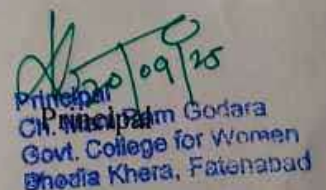 20/09/25
Principal
Principal
Ch. Ram Godara
Govt. College for Women
Bhodia Khera, Fatehabad